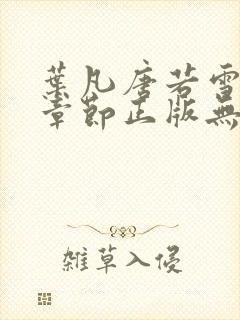 葉凡唐若雪
章節正版無
雜草入侵